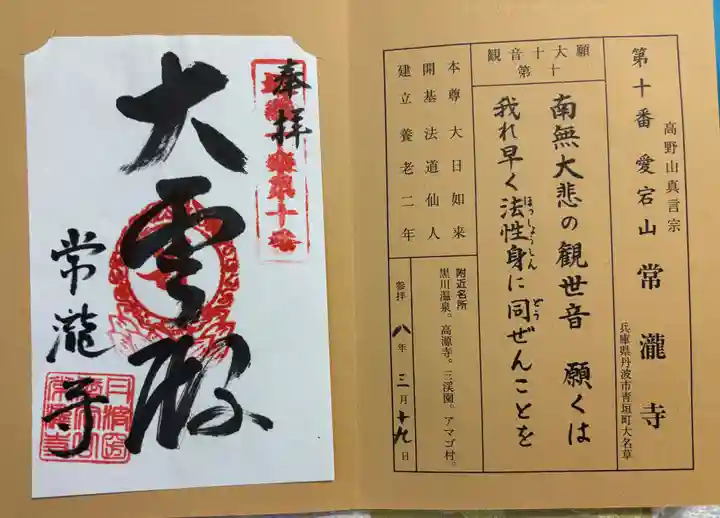 奉拝
大雲殿
常瀧寺
高野山真言宗
第十番 愛宕山 常瀧寺
兵庫県丹波市青垣町大名草
観音十大願
第十
南無大悲の観世音 願くは
我れ早く法性身に同ぜんことを
ほっしょうしん
どう
本尊 大日如来
開基 法道仙人
建立 養老二年
附近名所
黒川温泉。高源寺。三渓園。アマゴ村。
参拝 八年 二月 十九日